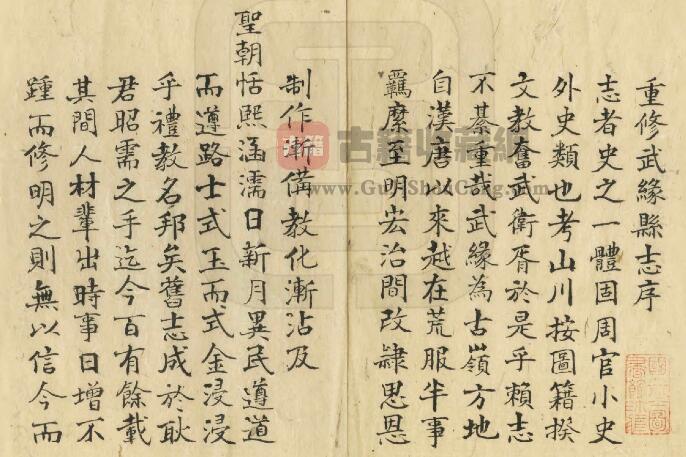 重修武緣縣志序
志者史之一體固周官小史
外史類也考山川按圖籍揆
文教奮武衛胥於是乎賴志
不綦重哉武緣為古嶺方地
自漢唐以來越在荒服半事
羈縻至明宏治間改隸思恩
制作漸備教化漸沾及
聖朝恬熙涵濡日新月異民遵道
而遵路士式玉而式金浸浸
乎禮教名邦矣舊志成於耿
君昭需之手迄今百有餘載
其間人材輩出時事日增不
踵而修明之則無以信今而
古籍收藏網
www.GuJiShuCang.com